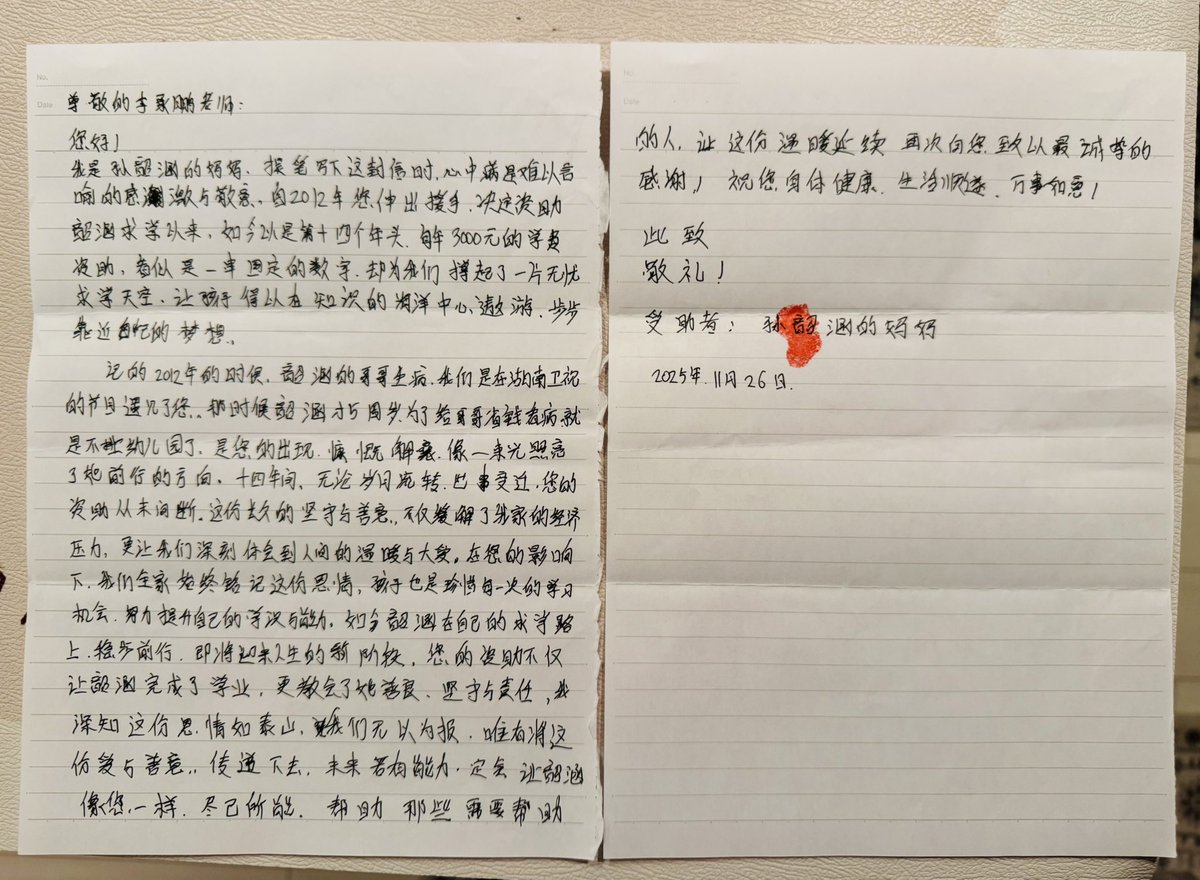 No.
Date
尊敬的李承鹏老师：
您好！
我是孙韶涵的妈妈，提笔写下这封信时，心中满是难以言
响的感激与敬意，自2012年您伸出援手，决定资助
韶涵求学以来，如今以是第十四个年头，每年3000元的学费
资助，看似是一串固定的数字，却为我们撑起了一片无忧
求学天空，让孩子得以在知识的海洋中心遨游，步步
靠近自己的梦想。
记的2012年的时候，韶涵的哥哥生病，我们是在湖南卫视
的节目遇见了您。那时候韶涵才5周岁为了给哥哥省钱看病，就
是不上幼儿园了，是您的出现，慷慨解囊，像一束光照亮
了她前行的方向，十四年间，无论岁月流转，世事变迁，您的
资助从未间断。这份长久的坚守与善意，不仅缓解了我家的经济
压力，更让我们深刻体会到人间的温暖与大爱。在您的影响
下，我们全家始终铭记这份恩情，孩子也是珍惜每一次的学习
机会，努力提升自己的学识与能力，如今韶涵在自己的求学路
上，稳步前行，即将迎来人生的新阶段，您的资助不仅
让韶涵完成了学业，更教会了她善良、坚守与责任，我
深知这份恩情如泰山，我们无以为报，唯有将这
份爱与善意，传递下去，未来若有能力，定会让韶涵
像您一样，尽己所能，帮助那些需要帮助
No.
Date
的人，让这份温暖延续 再次向您致以最诚挚的
感谢！祝您身体健康，生活顺遂，万事如意！
此致
敬礼！
受助者：孙韶涵的妈妈
2025年11月26日.